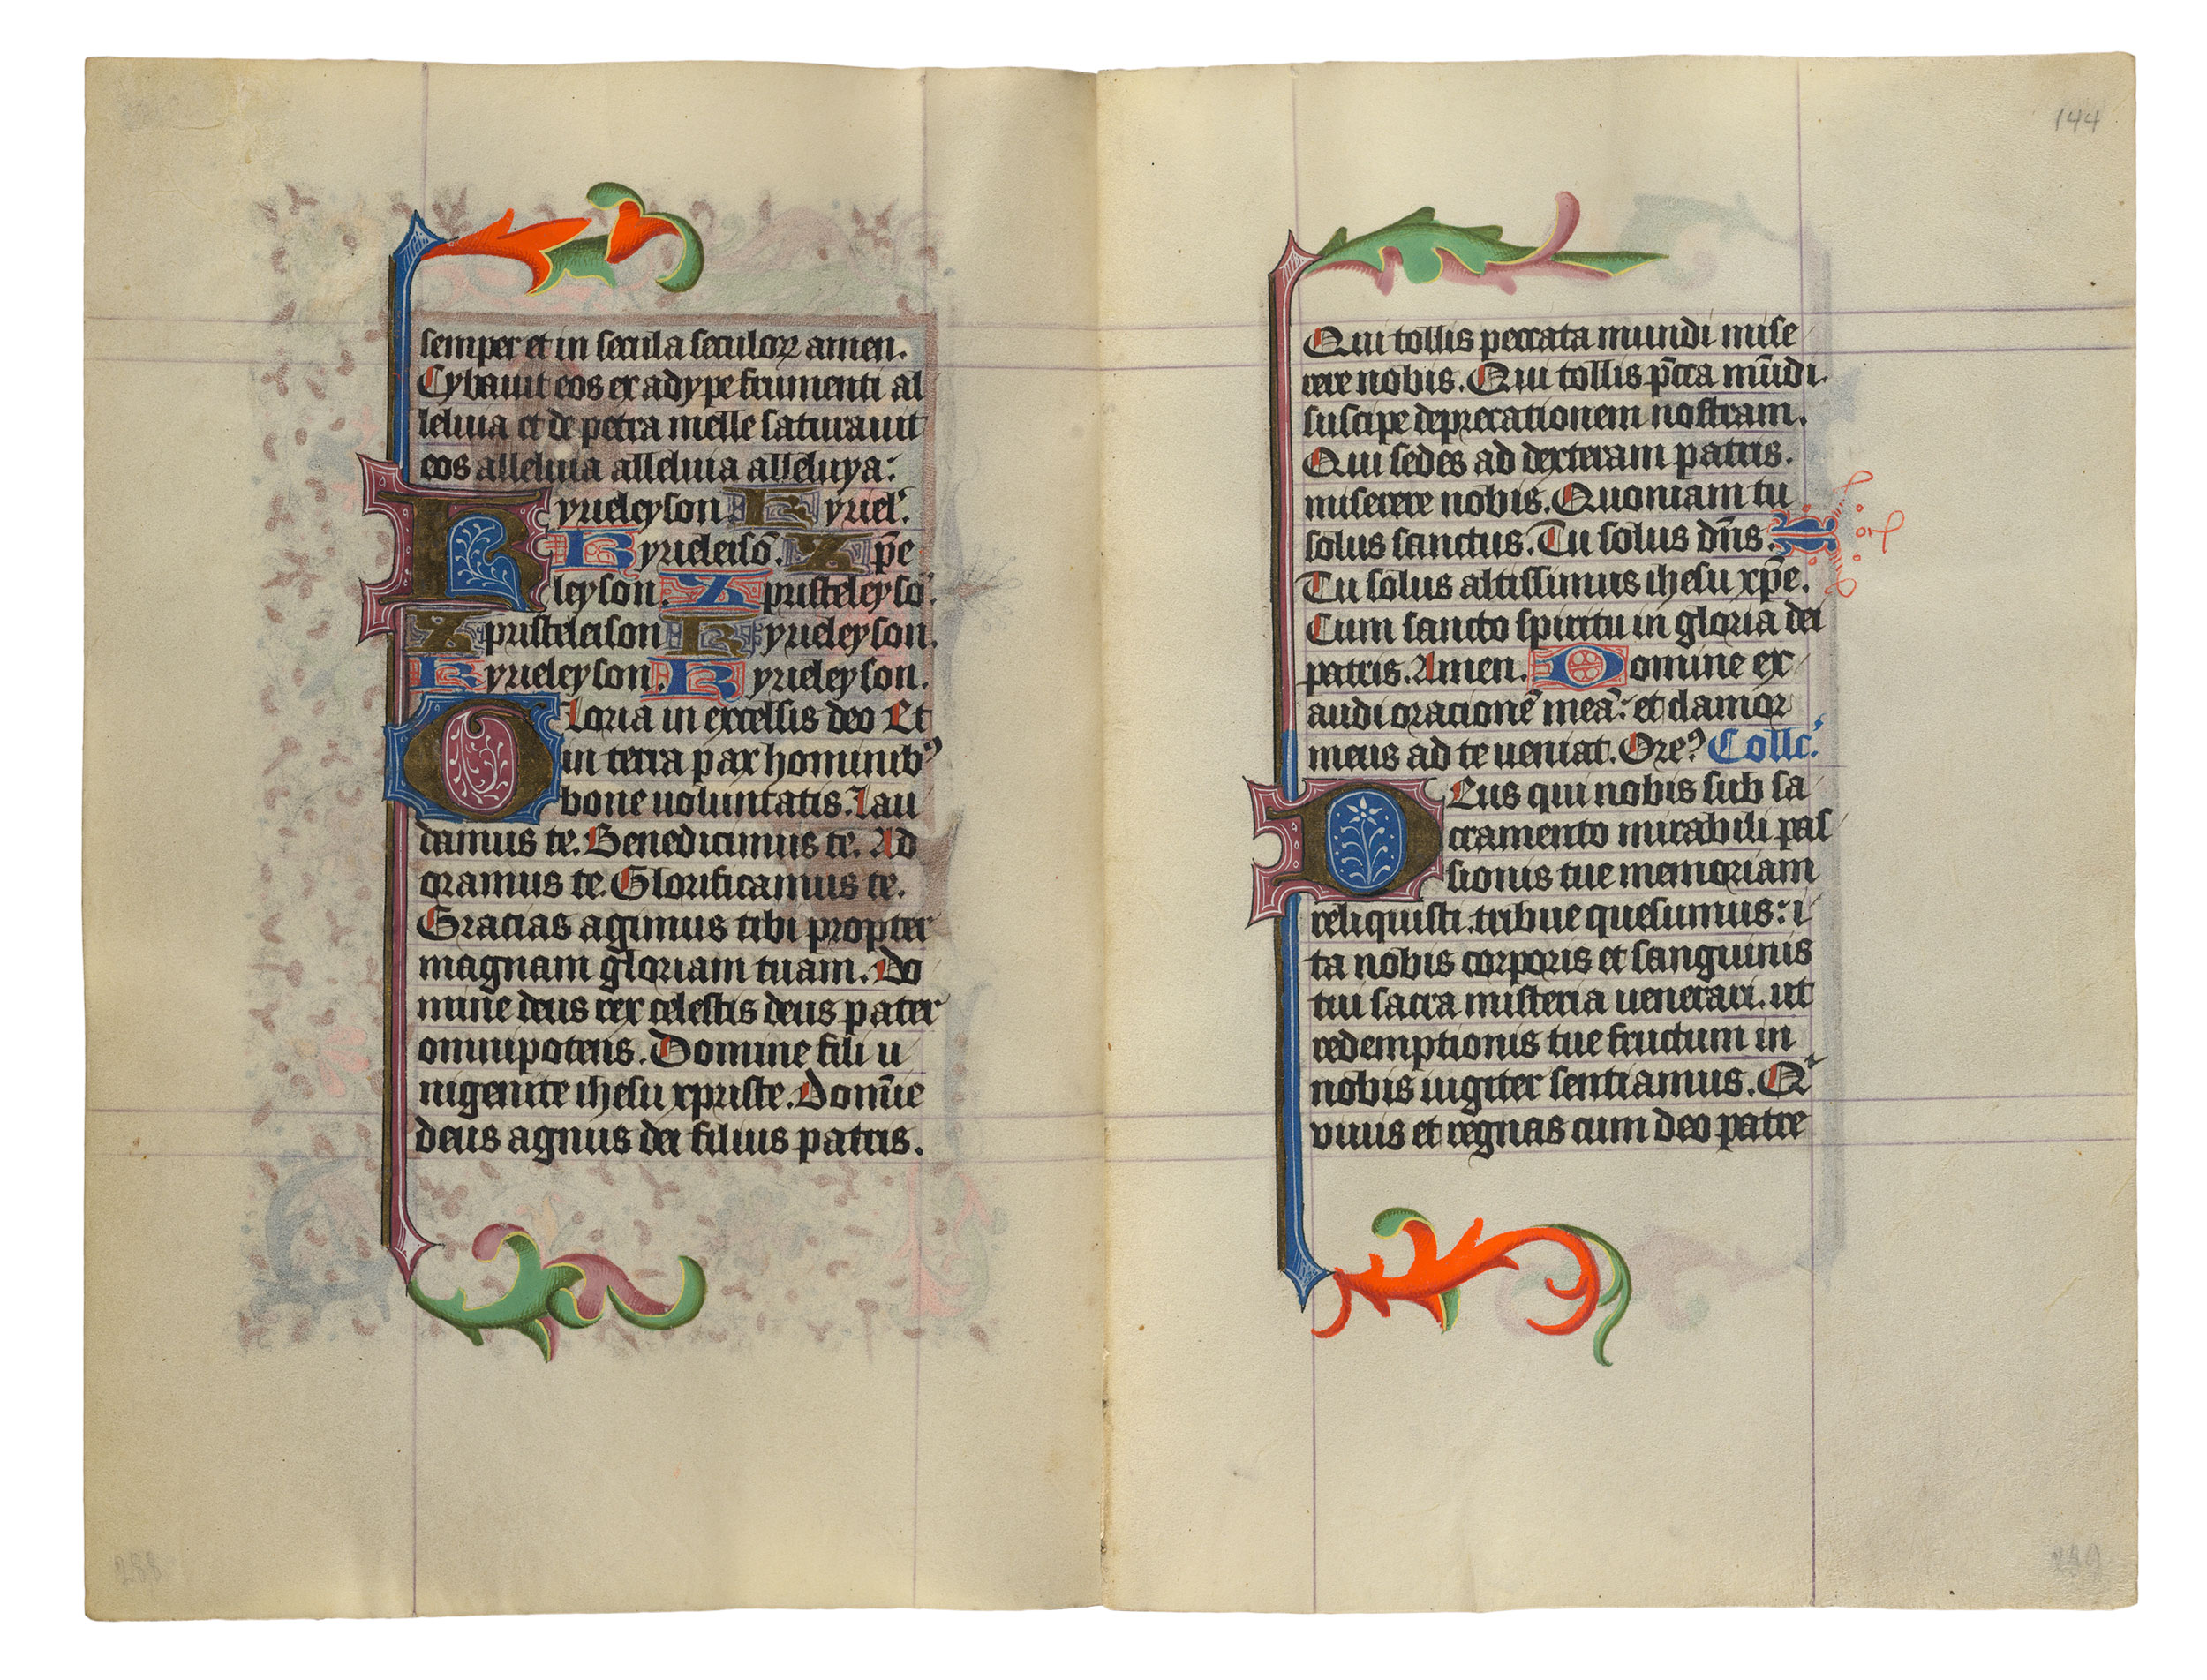 semper et in secula seculoꝝ amen.
Cybauit eos ex adype frumenti al
leluia et de petra melle saturauit
eos alleluia alleluia alleluya:
Kyrieleyson Kyriel'.
Kyrieleisō. Xp̄e
leyson. Xpristeleysō.
Xpristeleison Kyrieleyson.
Kyrieleyson. Kyrieleyson.
Gloria in excelsis deo Et
in terra pax hominibꝰ
bone uoluntatis. Lau
damus te. Benedicimus te. Ad
oramus te. Glorificamus te.
Gracias agimus tibi propter
magnam gloriam tuam. Do
mine deus rex celestis deus pater
omnipotens. Domine fili u
nigenite ihesu xpriste. Domīe
deus agnus dei filius patris.
144
Qui tollis peccata mundi mise
rere nobis. Qui tollis p̄cca mūdi
suscipe deprecationem nostram.
Qui sedes ad dexteram patris.
miserere nobis. Quoniam tu
solus sanctus. Tu solus dn̄s.
Tu solus altissimus ihesu xp̄e.
Cum sancto spiritu in gloria dei
patris. Amen. Domine ex
audi oracionē meā: et clamor
meus ad te ueniat. Oreꝰ Collc'.
Deus qui nobis sub sa
cramento mirabili pas
sionis tue memoriam
reliquisti. tribue quesumus: i
ta nobis corporis et sanguinis
tui sacra misteria uenerari. ut
redemptionis tue fructum in
nobis iugiter sentiamus. Qi
viuis et regnas cum deo patre